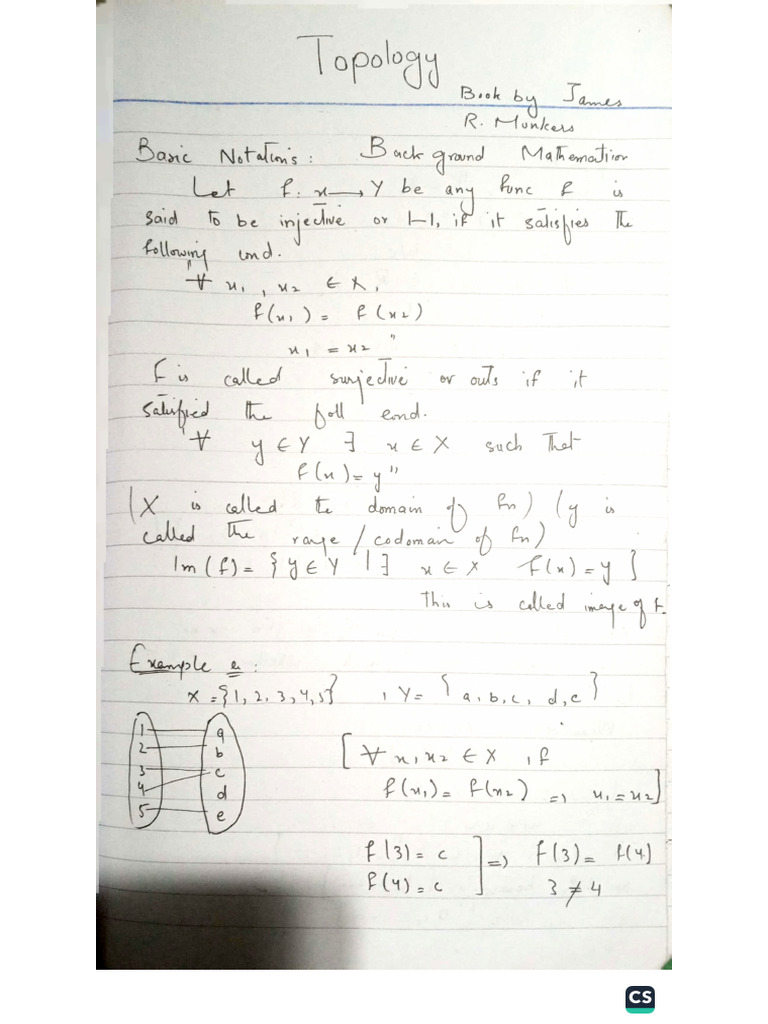 Topology
Book by James
R. Munkers
Basic Notation's : Back ground Mathematiion
Let f: x → Y be any func f is
said to be injective or 1-1, if it satisfies the
following cond.
"∀ x1 , x2 ∈ X,
f(x1) = f(x2)
x1 = x2 "
f is called surjective or outs if it
satisfied the foll cond.
"∀ y ∈ Y ∃ x ∈ X such that
f(x) = y"
(X is called the domain of fn) (y is
called the range / codomain of fn)
Im (f) = { y ∈ Y | ∃ x ∈ X f(x) = y }
This is called image of f.
Example :
X = {1, 2, 3, 4, 5} , Y = { a, b, c, d, e }
1 a
2 b
3 c
4 d
5 e
[ ∀ x1 x2 ∈ X , if
f(x1) = f(x2) => x1 = x2 ]
f(3) = c ] => f(3) = f(4)
f(4) = c 3 ≠ 4
CS